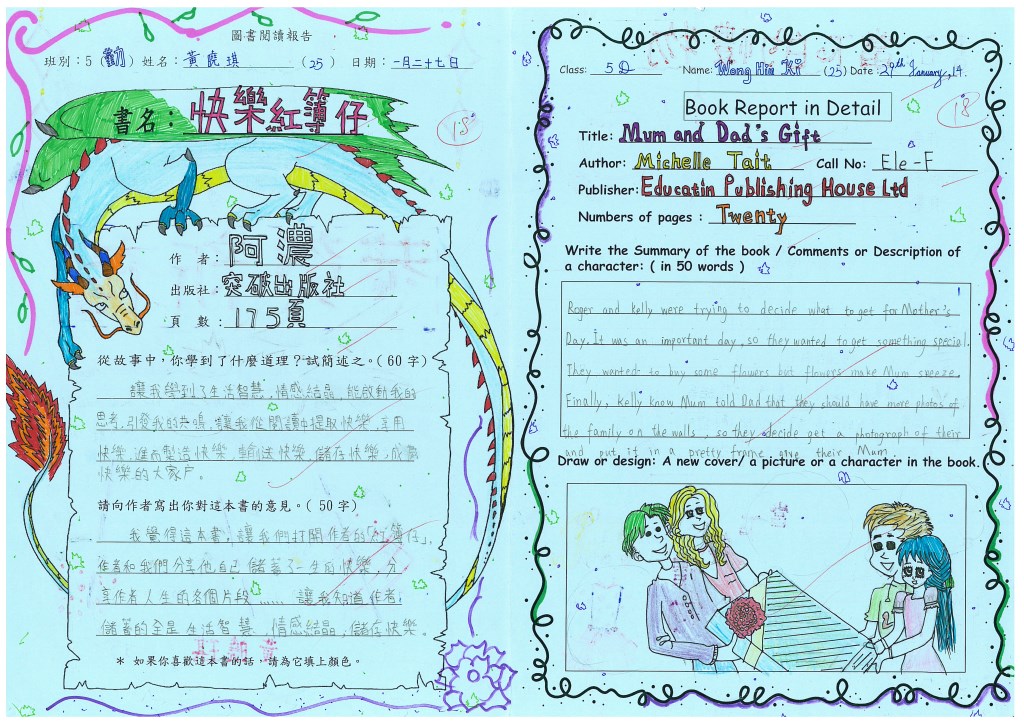 圖書閱讀報告
班別：5 (勤) 姓名：黃曉琪 (25) 日期：一月二十七日
書名：快樂紅簿仔
18
作者：阿濃
出版社：突破出版社
頁數：175頁
從故事中，你學到了什麼道理？試簡述之。(60字)
讓我學到了生活智慧，情感結晶，能啟動我的
思考，引發我的共鳴，讓我從閱讀中提取快樂，享用
快樂，進而製造快樂，輸送快樂，儲存快樂，成為
快樂的大家户。
請向作者寫出你對這本書的意見。( 50字)
我覺得這本書，讓我們打開作者的「紅簿仔」，
作者和我們分享他自己儲蓄了一生的快樂，分
享作者人生的各個片段……讓我知道作者
儲蓄的全是生活智慧、情感結晶，儲存快樂。
* 如果你喜歡這本書的話，請為它填上顏色。
Class: 5D Name: Wong Hiu Ki (25) Date: 29th January, 14.
Book Report in Detail
18
Title: Mum and Dad's Gift
Author: Michelle Tait Call No: Ele-F
Publisher: Educatin Publishing House Ltd
Numbers of pages : Twenty
Write the Summary of the book / Comments or Description of
a character: ( in 50 words )
Roger and kelly were trying to decide what to get for Mother's
Day. It was an important day, so they wanted to get something special.
They wanted to buy some flowers but flowers make Mum sneeze.
Finally, kelly know Mum told Dad that they should have more photos of
the family on the walls, so they decide get a photograph of their
and put it in a pretty frame gave their Mum.
Draw or design: A new cover/ a picture or a character in the book.